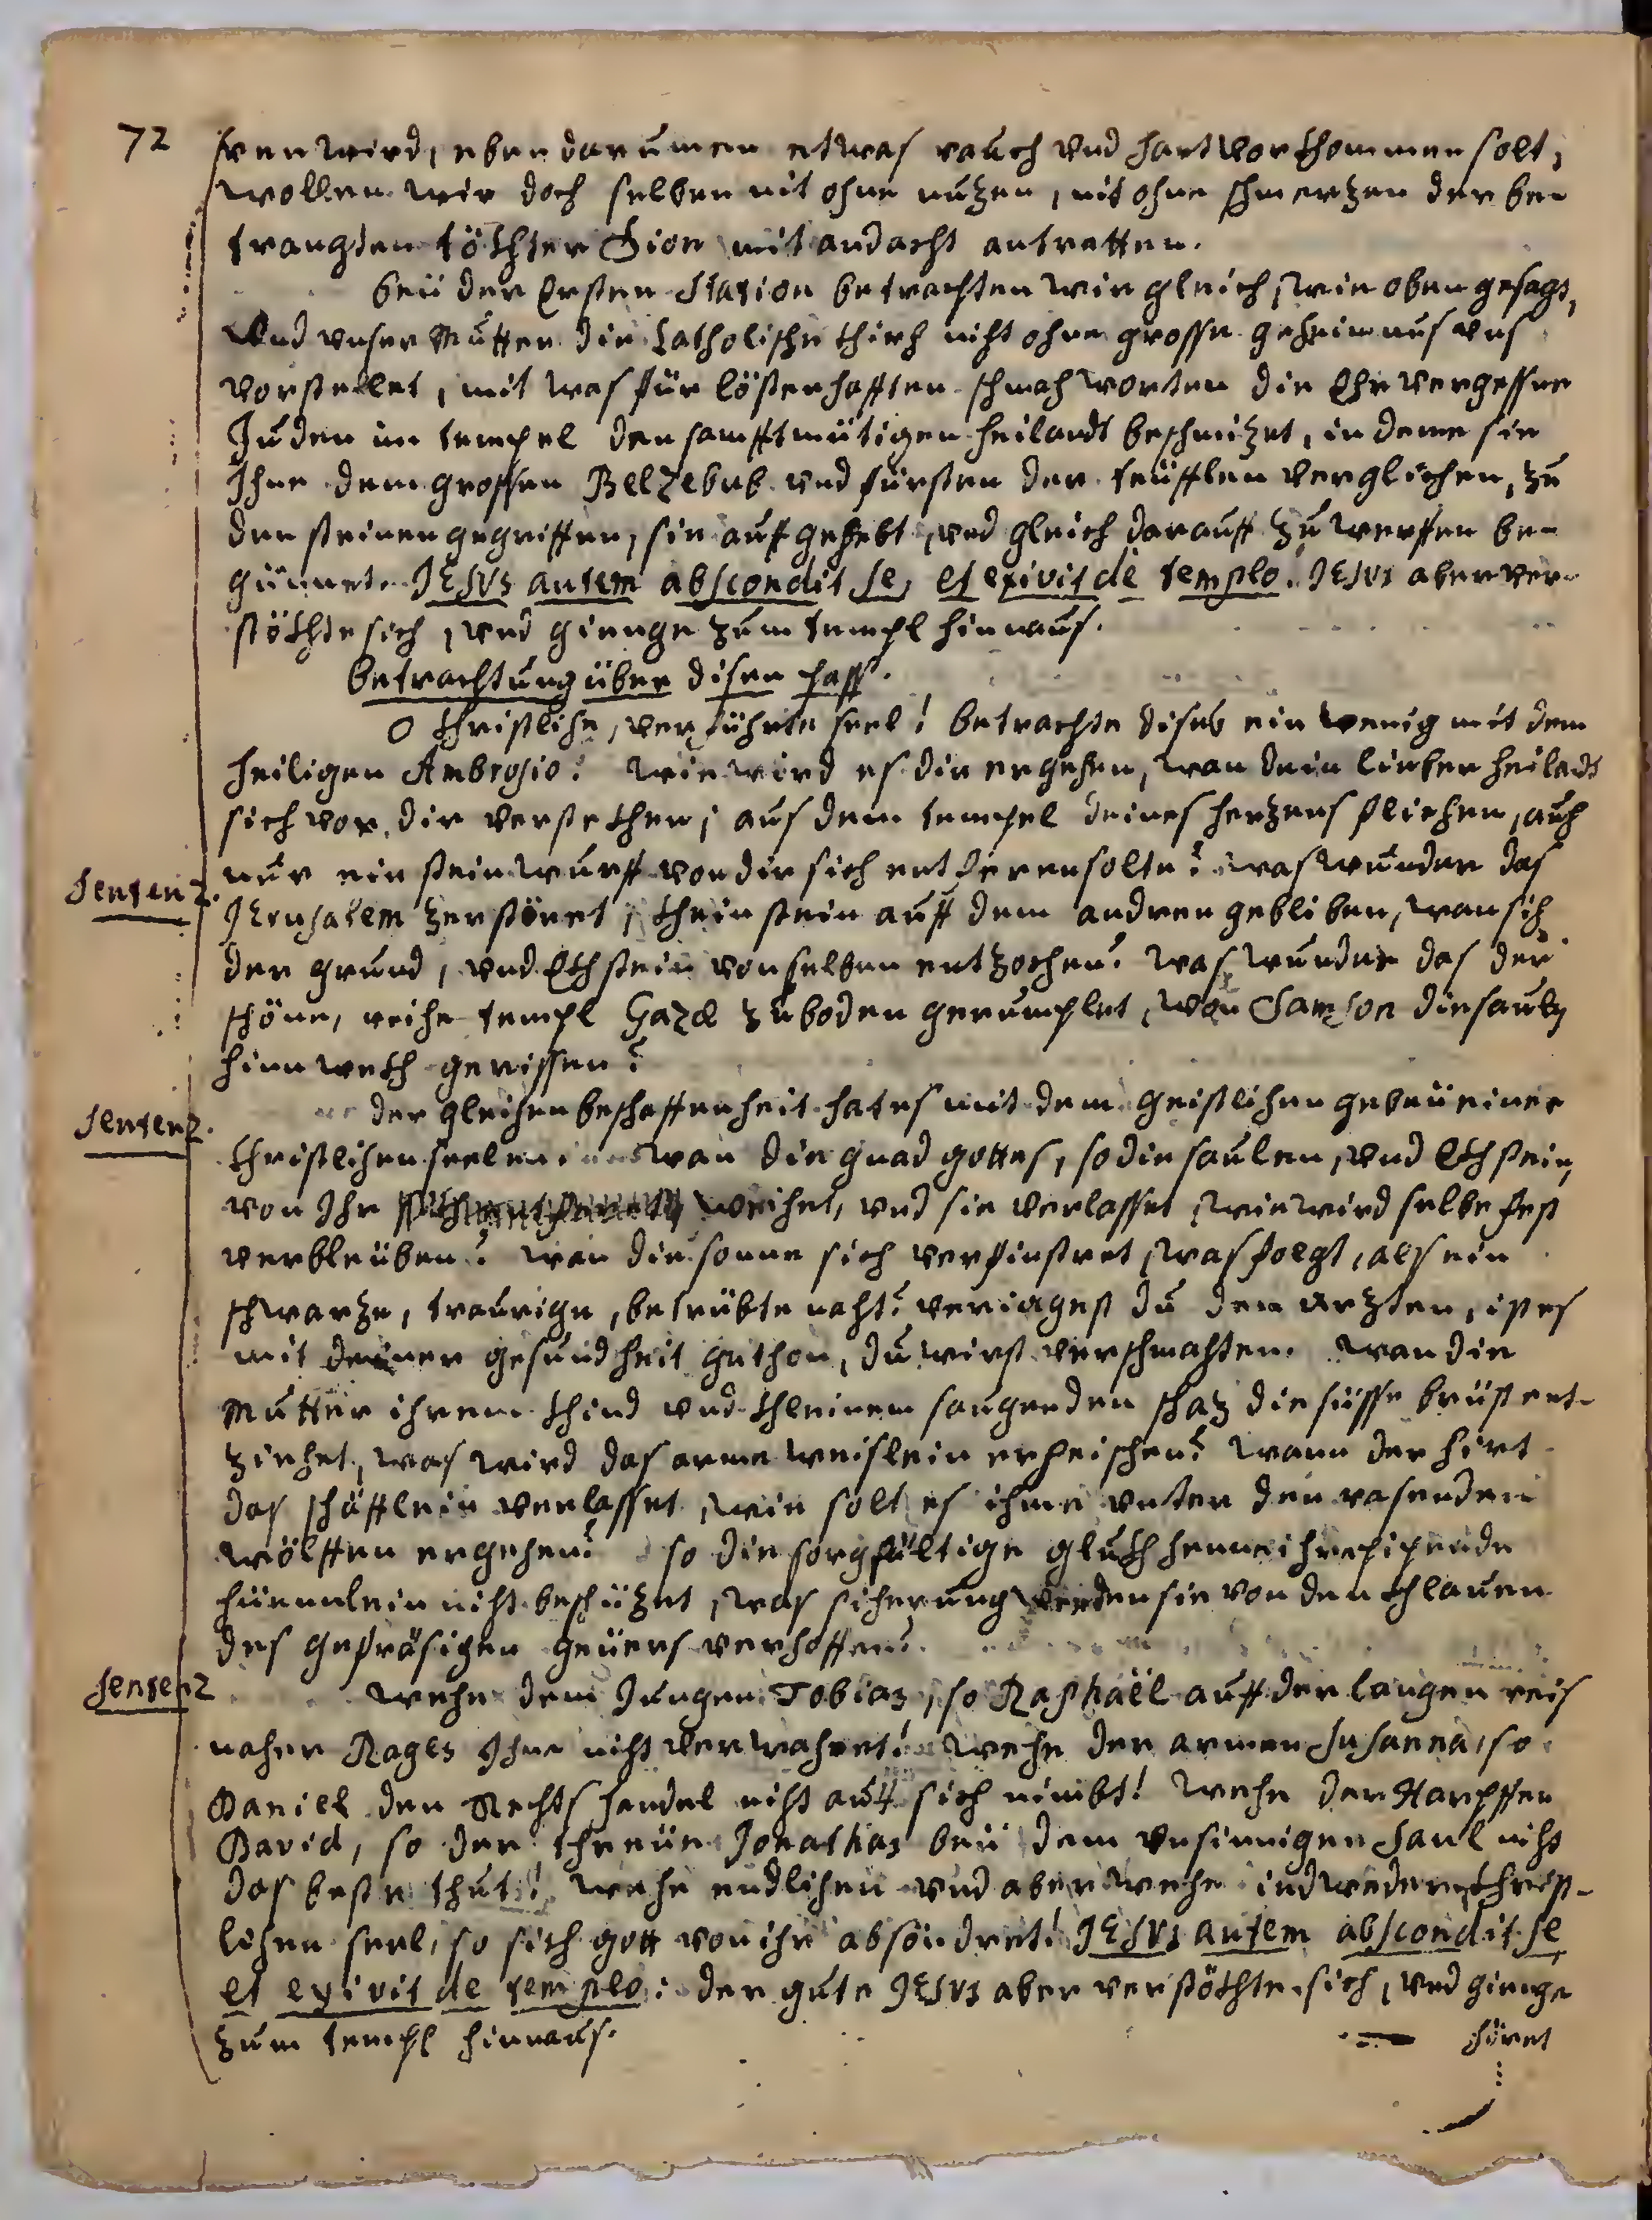 72
ren wird, eben darumen etwas rauch vnd hart vorkhommen solt,
wollen wir doch selben nit ohne nuzen, nit ohne schmerzen der be-
trangten töchter Sion mit andacht antretten.
beü der Ersten Station betrachten wir gleich, wie oben gesagt,
Vnd vnser Mutter die Catholische khirch nicht ohne grosse geheimnus vns
vorstellet, mit was für lösterhafften schmachworten die Ehrvergessne
Juden im tempel den samfftmütigen heilandt beschmizet, in deme sie
Ihne dem grossen Belzebub vnd fürsten der teüfflen verglichen, zu
den steinen gegriffen, sie aufgehebt, vnd gleich darauff zu werffen be-
günnet. JESVS autem abscondit se, et exivit de templo. JESVS aber ver-
stökhte sich, vnd gienge zum templ hinnaus.
Betrachtung über disen pass.
O khristliche, verführte seel! betrachte dises ein wenig mit dem
heiligen Ambrosio! wie wird es dir ergehen, wan dein lieber heiladt
sich vor dir verstekhen, aus dem tempel deines herzens fliehen, auch
nur ein steinwurff von dir sich entferen solte? was wunder das
Sentenz.
JErusalem zerstöret, khein stein auff dem andren gebliben, wan sich
der grund, vnd Ekhstein von selben entzochen? was wunder das der
schöne, reiche templ Gazæ zu boden gerumplet, wan Samson die sauln
hinnwekh gerissen?
der gleichen beschaffenheit hat es mit dem geistlichen gebeü einer
Sentenz.
khristlichen seelen: wan die gnad gottes, so die saulen, vnd Ekhstein,
von Ihr weichet, vnd sie verlasset, wie wird selbe fest
verbleüben? wan die sonne sich verfinstret, was folgt, als ein
schwarze, traurige, betrübte nacht? veriagest du den Arzten, ist es
mit deiner gesundheit gethon, du wirst verschmachten. wan die
Mutter ihrem khind vnd khleinem saugenden schaz die süsse brüst ent-
ziehet, was wird das arme weislein erheischen? wann der hirt
das schäfflein verlasset, wie solt es ihme vnter den rasenden
wölffen ergehen? so die sorgfältige glukhhenne ihre pipende
hüennlein nicht beschüzet, was sicherung werden sie von den khlauen
des gefräsigen geüers verhoffen?
Sentenz
wehe dem Jungen Tobias, so Raphaël auff der langen reis
naher Rages Ihne nicht verwahret! wehe der armen Susanna, so
Daniel den Rechtshandel nicht auff sich nimbt! wehe der Harpffen
David, so der threüe Jonathas beü dem vnsinnigen Saul nicht
das beste thut! wehe endlichen vnd aber wehe iedwederer khrist-
lichen seel, so sich gott von ihr absöndret! JESVS autem abscondit se,
et exivit de templo: der gute JESVS aber verstökhte sich, vnd gienge
zum templ hinnaus.
höret